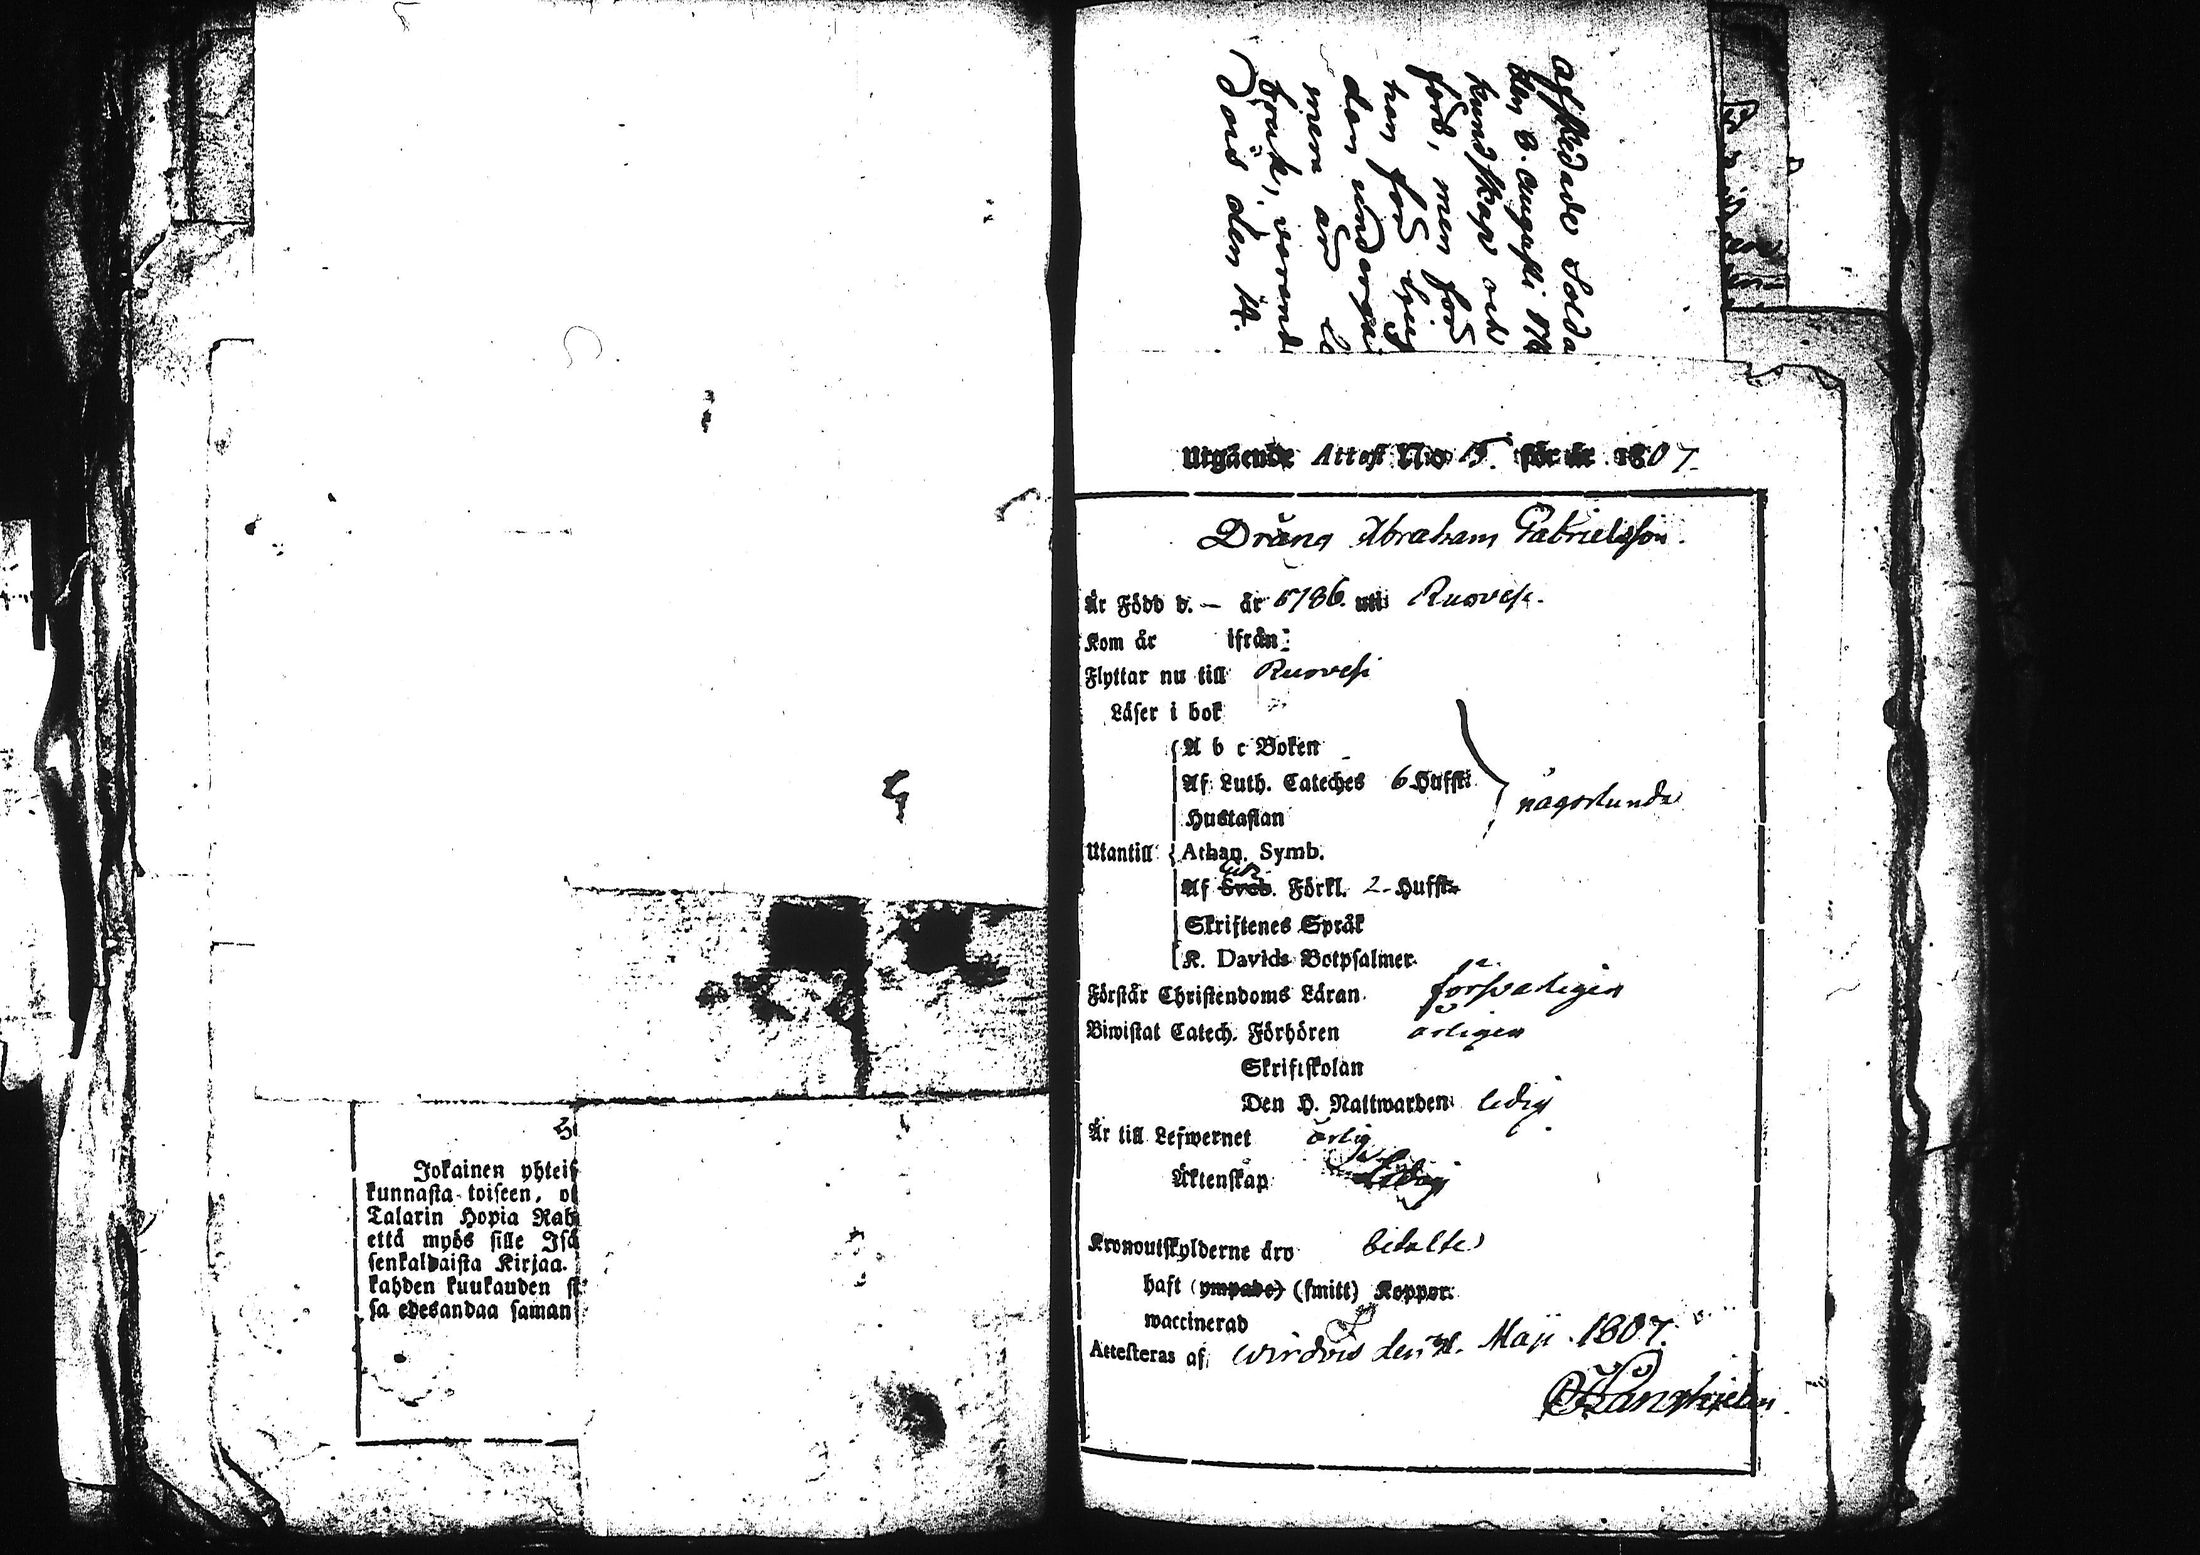 Jokainen yhteis
kunnasta toiseen, o
Talarin Hopia Rah
että myös sille Isä
senkaldaista Kirjaa.
kahden kuukauden s
sa edesandaa saman
afskedade Solda
den 3. Augusti 178
kundskap och
förd, men för
han förd
men är
bruk, varand
den 14.
Utgående Attest No 15. för år 1807.
Dräng Abraham Gabrielsson.
Är Född d. – år 1786. uti Ruovesi.
Kom år ifrån
Flyttar nu till Ruovesi
Läser i bok
A b c Boken
Af Luth. Cateches 6 Hufst.
någorlunda
Hustaflan
Utantill Athan. Symb.
Af Sveb. Förkl. 2 Hufst.
Skriftenes Språk
K. Davids Botpsalmer
Förstår Christendoms Läran försvarligen
Biwistat Catech. Förhören årligen
Skriftskolan
Den H. Nattwarden ledig
Är till Lefwernet ärlig
Äktenskap ledig
Kronoutskylderne äro betalte
haft (ympade) (smitt) Koppor.
waccinerad
Attesteras af Wirdois den Maji 1807.